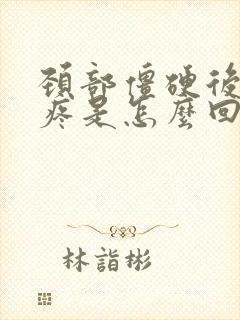 頸部僵硬後
疼是怎麼回
林詣彬